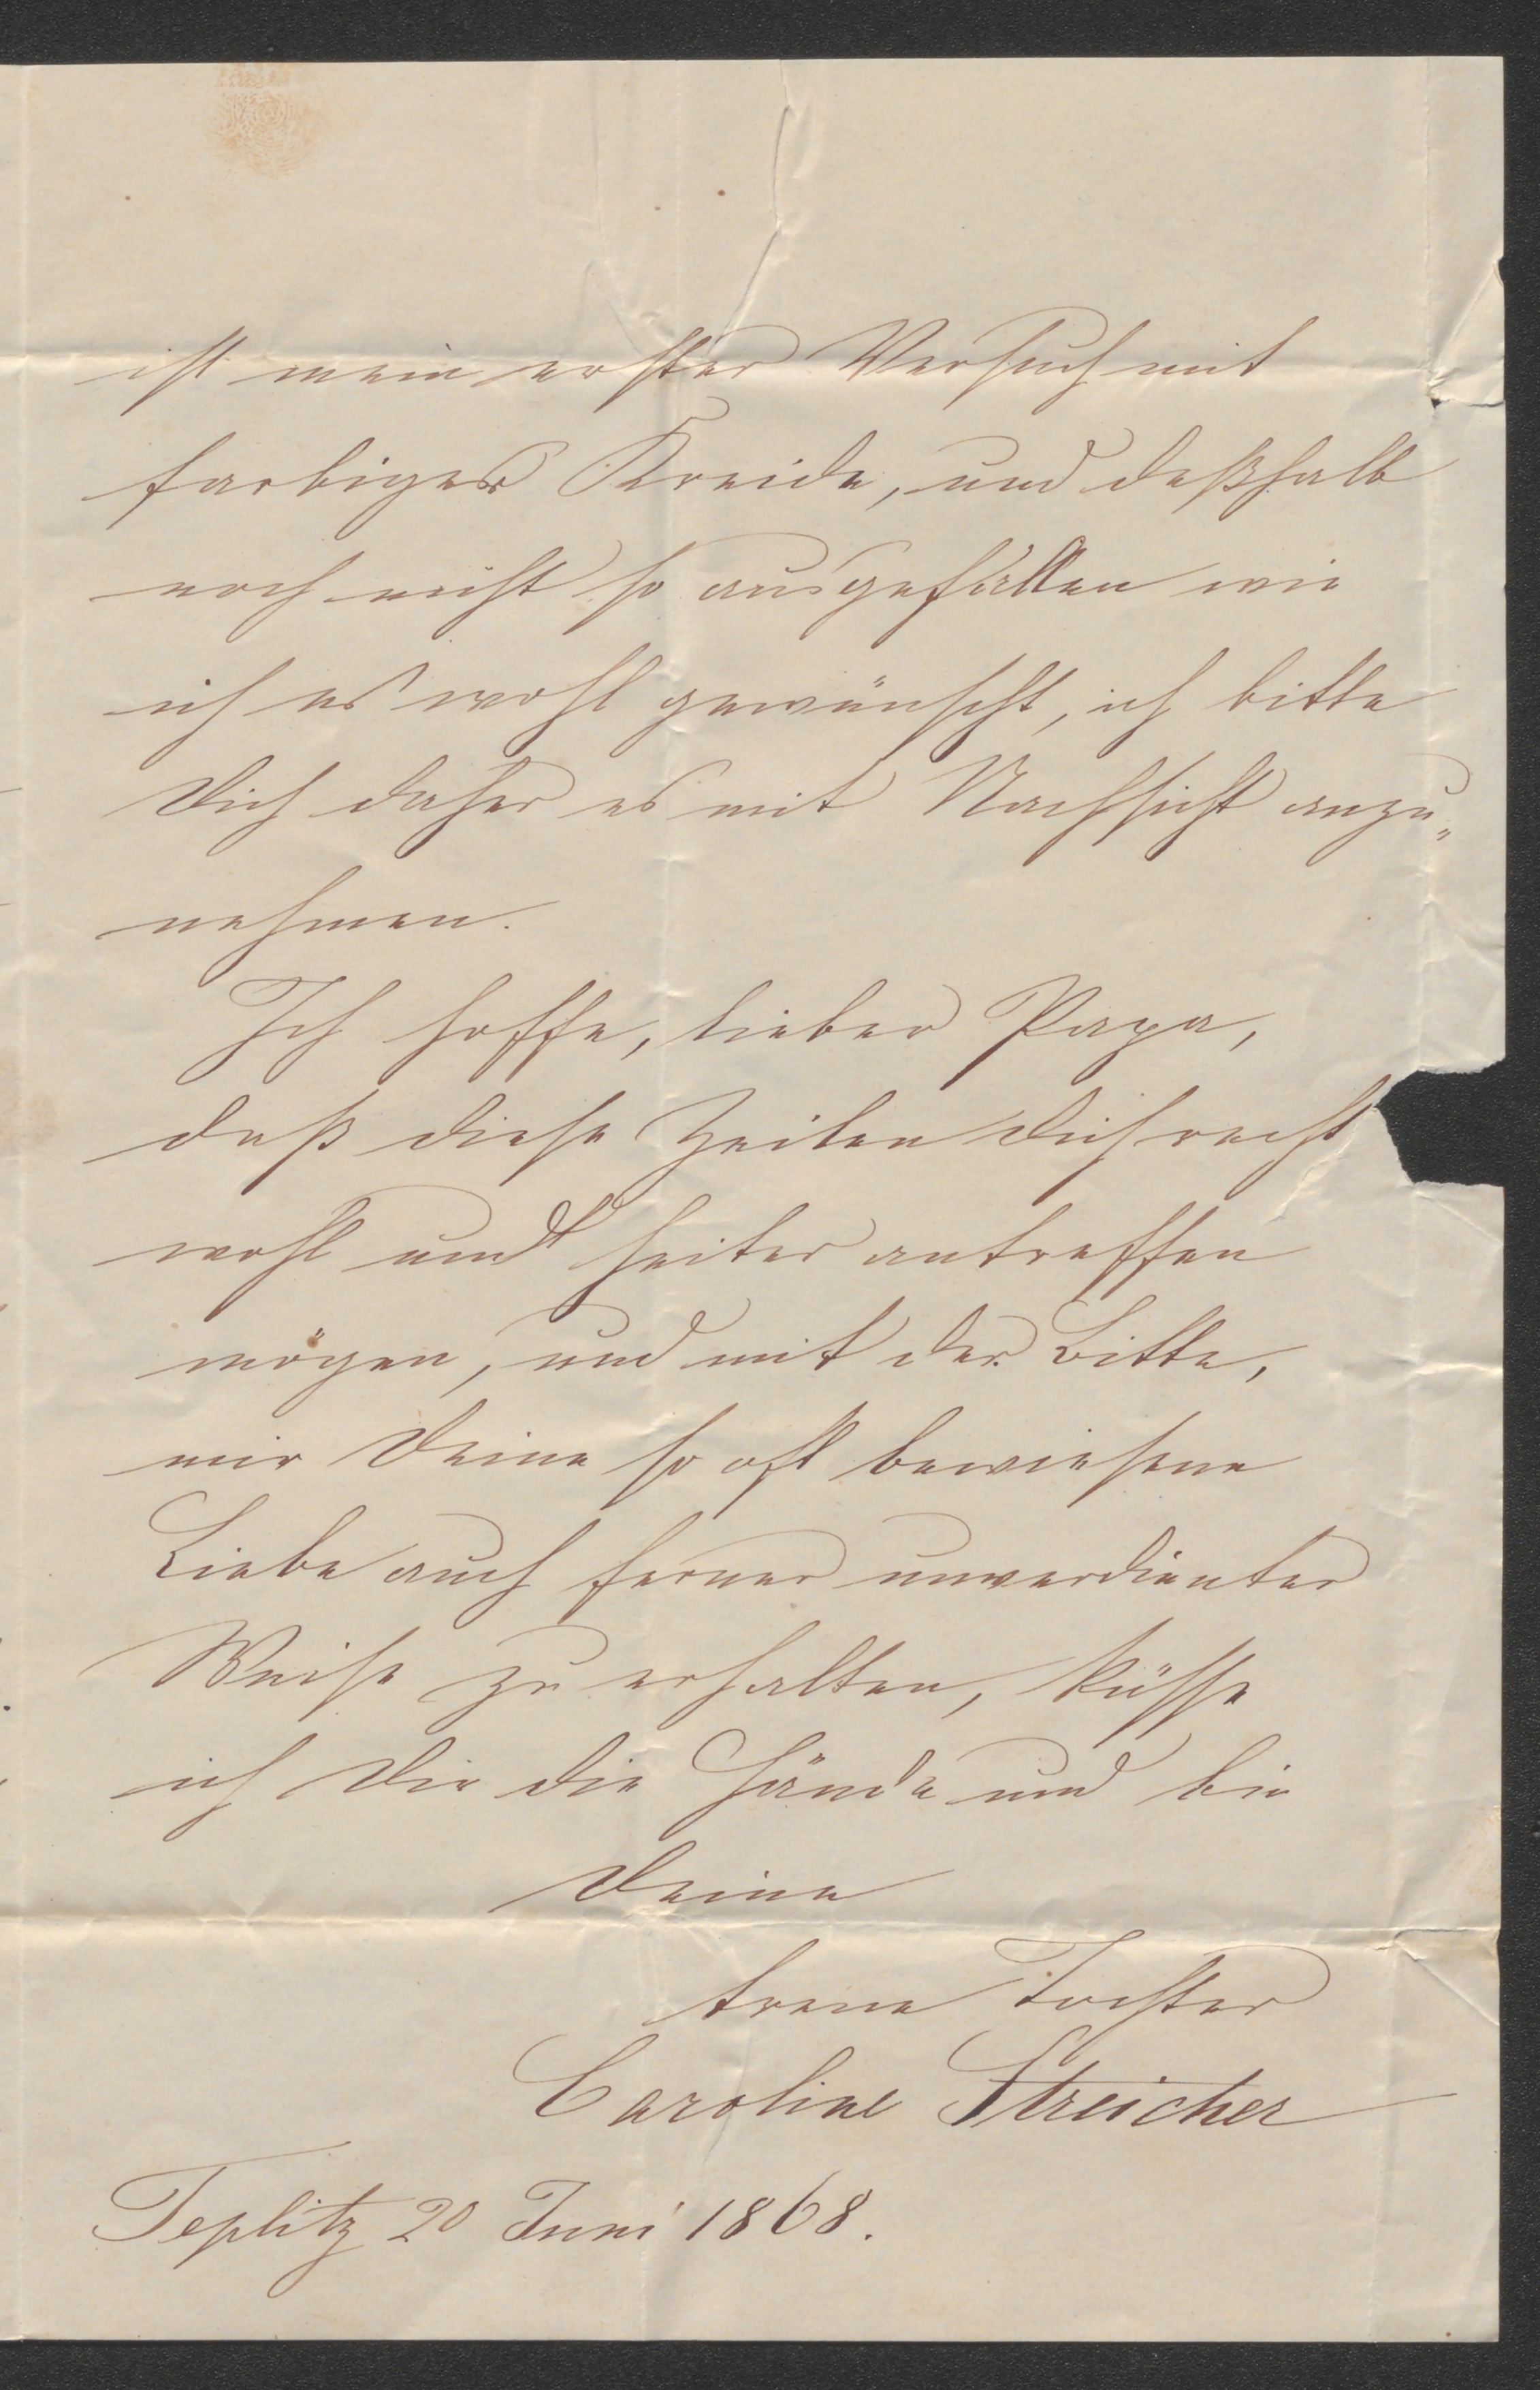 ist mein erster Versuch mit
farbiger Kreide, und deßhalb
noch nicht so ausgefallen wie
ich es wohl gewünscht, ich bitte
Dich daher es mit Nachsicht anzu„
nehmen.
Ich hoffe, lieber Papa,
daß diese Zeilen Dich recht
wohl und heiter antreffen
mögen, und mit der Bitte,
mir Deine so oft bewiesene
Liebe auch ferner unverdienter
Weise zu erhalten, küsse
ich Dir die Hände und bin
Deine
treue Tochter
Caroline Streicher
Teplitz 20 Juni 1868.